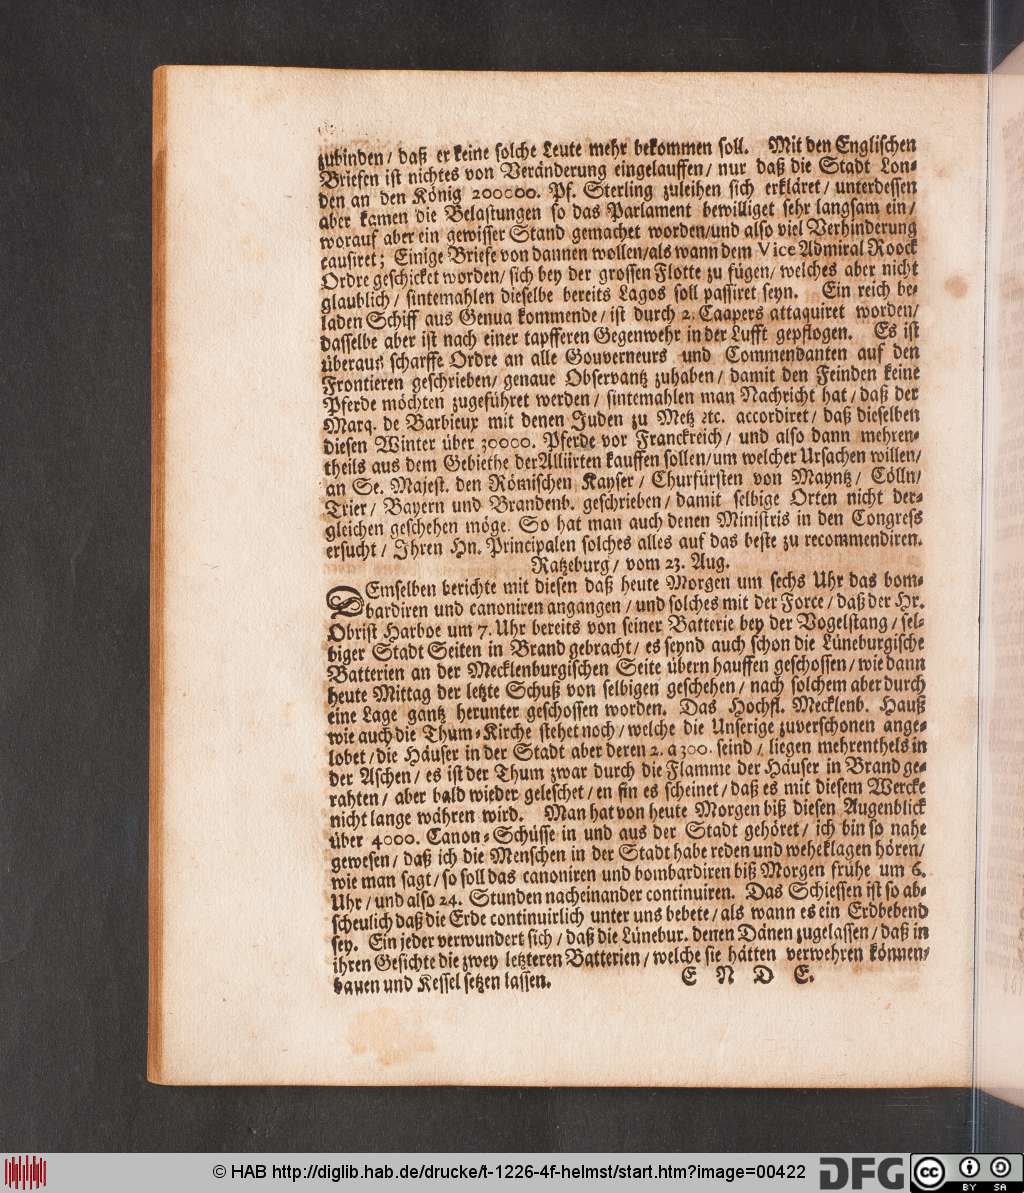 zubinden / daß er keine solche Leute mehr bekommen soll. Mit den Englischen
Briefen ist nichtes von Veränderung eingelauffen / nur daß die Stadt Lon-
den an den König 200000. Pf. Sterling zuleihen sich erkläret / unterdessen
aber kamen die Belastungen so das Parlament bewilliget sehr langsam ein /
worauf aber ein gewisser Stand gemachet worden / und also viel Verhinderung
causiret; Einige Briefe von dannen wollen / als wann dem Vice Admiral Roock
Ordre geschicket worden / sich bey der grossen Flotte zu fügen / welches aber nicht
glaublich / sintemahlen dieselbe bereits Lagos soll passiret seyn. Ein reich be-
laden Schiff aus Genua kommende / ist durch 2. Caapers attaquiret worden /
dasselbe aber ist nach einer tapfferen Gegenwehr in der Lufft gepflogen. Es ist
überaus scharffe Ordre an alle Gouverneurs und Commendanten auf den
Frontieren geschrieben / genaue Observantz zuhaben / damit den Feinden keine
Pferde möchten zugeführet werden / sintemahlen man Nachricht hat / daß der
Marq. de Barbieux mit denen Juden zu Metz etc. accordiret / daß dieselben
diesen Winter über 30000. Pferde vor Franckreich / und also dann mehren-
theils aus dem Gebiethe der Alliirten kauffen sollen / um welcher Ursachen willen /
an Se. Majest. den Römischen Kayser / Churfürsten von Mayntz / Cölln /
Trier / Bayern und Brandenb. geschrieben / damit selbige Orten nicht der-
gleichen geschehen möge. So hat man auch denen Ministris in den Congress
ersucht / Ihren Hn. Principalen solches alles auf das beste zu recommendiren.
Ratzeburg / vom 23. Aug.
DEmselben berichte mit diesen daß heute Morgen um sechs Uhr das bom-
bardiren und canoniren angangen / und solches mit der Force / daß der Hr.
Obrist Harboe um 7. Uhr bereits von seiner Batterie bey der Vogelstang / sel-
biger Stadt Seiten in Brand gebracht / es seynd auch schon die Lüneburgische
Batterien an der Mecklenburgischen Seite übern hauffen geschossen / wie dann
heute Mittag der letzte Schuß von selbigen geschehen / nach solchem aber durch
eine Lage gantz herunter geschossen worden. Das Hochfl. Mecklenb. Hauß
wie auch die Thum-Kirche stehet noch / welche die Unserige zuverschonen ange-
lobet / die Häuser in der Stadt aber deren 2. a 300. seind / liegen mehrenthels in
der Aschen / es ist der Thum zwar durch die Flamme der Häuser in Brand ge-
rahten / aber bald wieder geleschet / en fin es scheinet / daß es mit diesem Wercke
nicht lange währen wird. Man hat von heute Morgen biß diesen Augenblick
über 4000. Canon-Schüsse in und aus der Stadt gehöret / ich bin so nahe
gewesen / daß ich die Menschen in der Stadt habe reden und weheklagen hören /
wie man sagt / so soll das canoniren und bombardiren biß Morgen frühe um 6.
Uhr / und also 24. Stunden nacheinander continuiren. Das Schiessen ist so ab-
scheulich daß die Erde continuirlich unter uns bebete / als wann es ein Erdbebend
sey. Ein jeder verwundert sich / daß die Lünebur. denen Dänen zugelassen / daß in
ihren Gesichte die zwey letzteren Batterien / welche sie hätten verwehren können-
bauen und Kessel setzen lassen. E N D E.
© HAB http://diglib.hab.de/drucke/t-1226-4f-helmst/start.htm?image=00422
DFG
cc BY SA